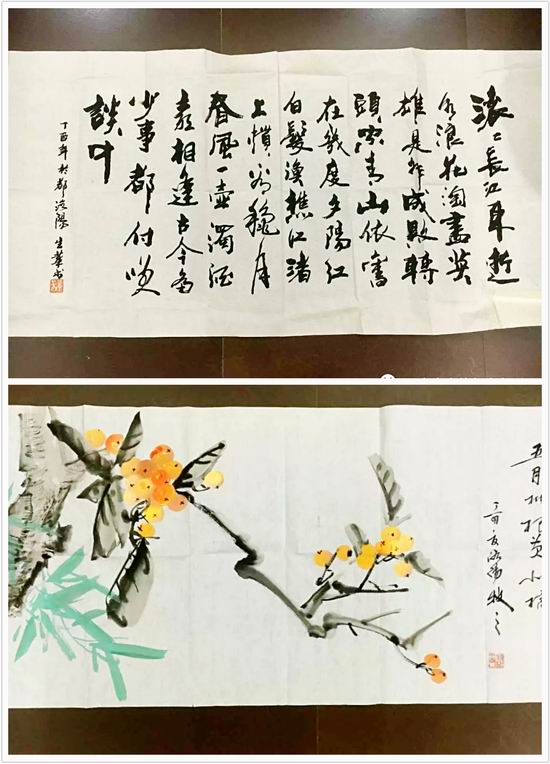 滚〻長江東逝
水浪花淘盡英
雄是非成敗轉
頭空青山依舊
在幾度夕陽紅
白髮漁樵江渚
上慣看秋月
春風一壺濁酒
喜相逢古今多
少事都付笑
談中
丁酉年於都洛陽
五月枇杷黄小橘
丁酉洛陽牧之